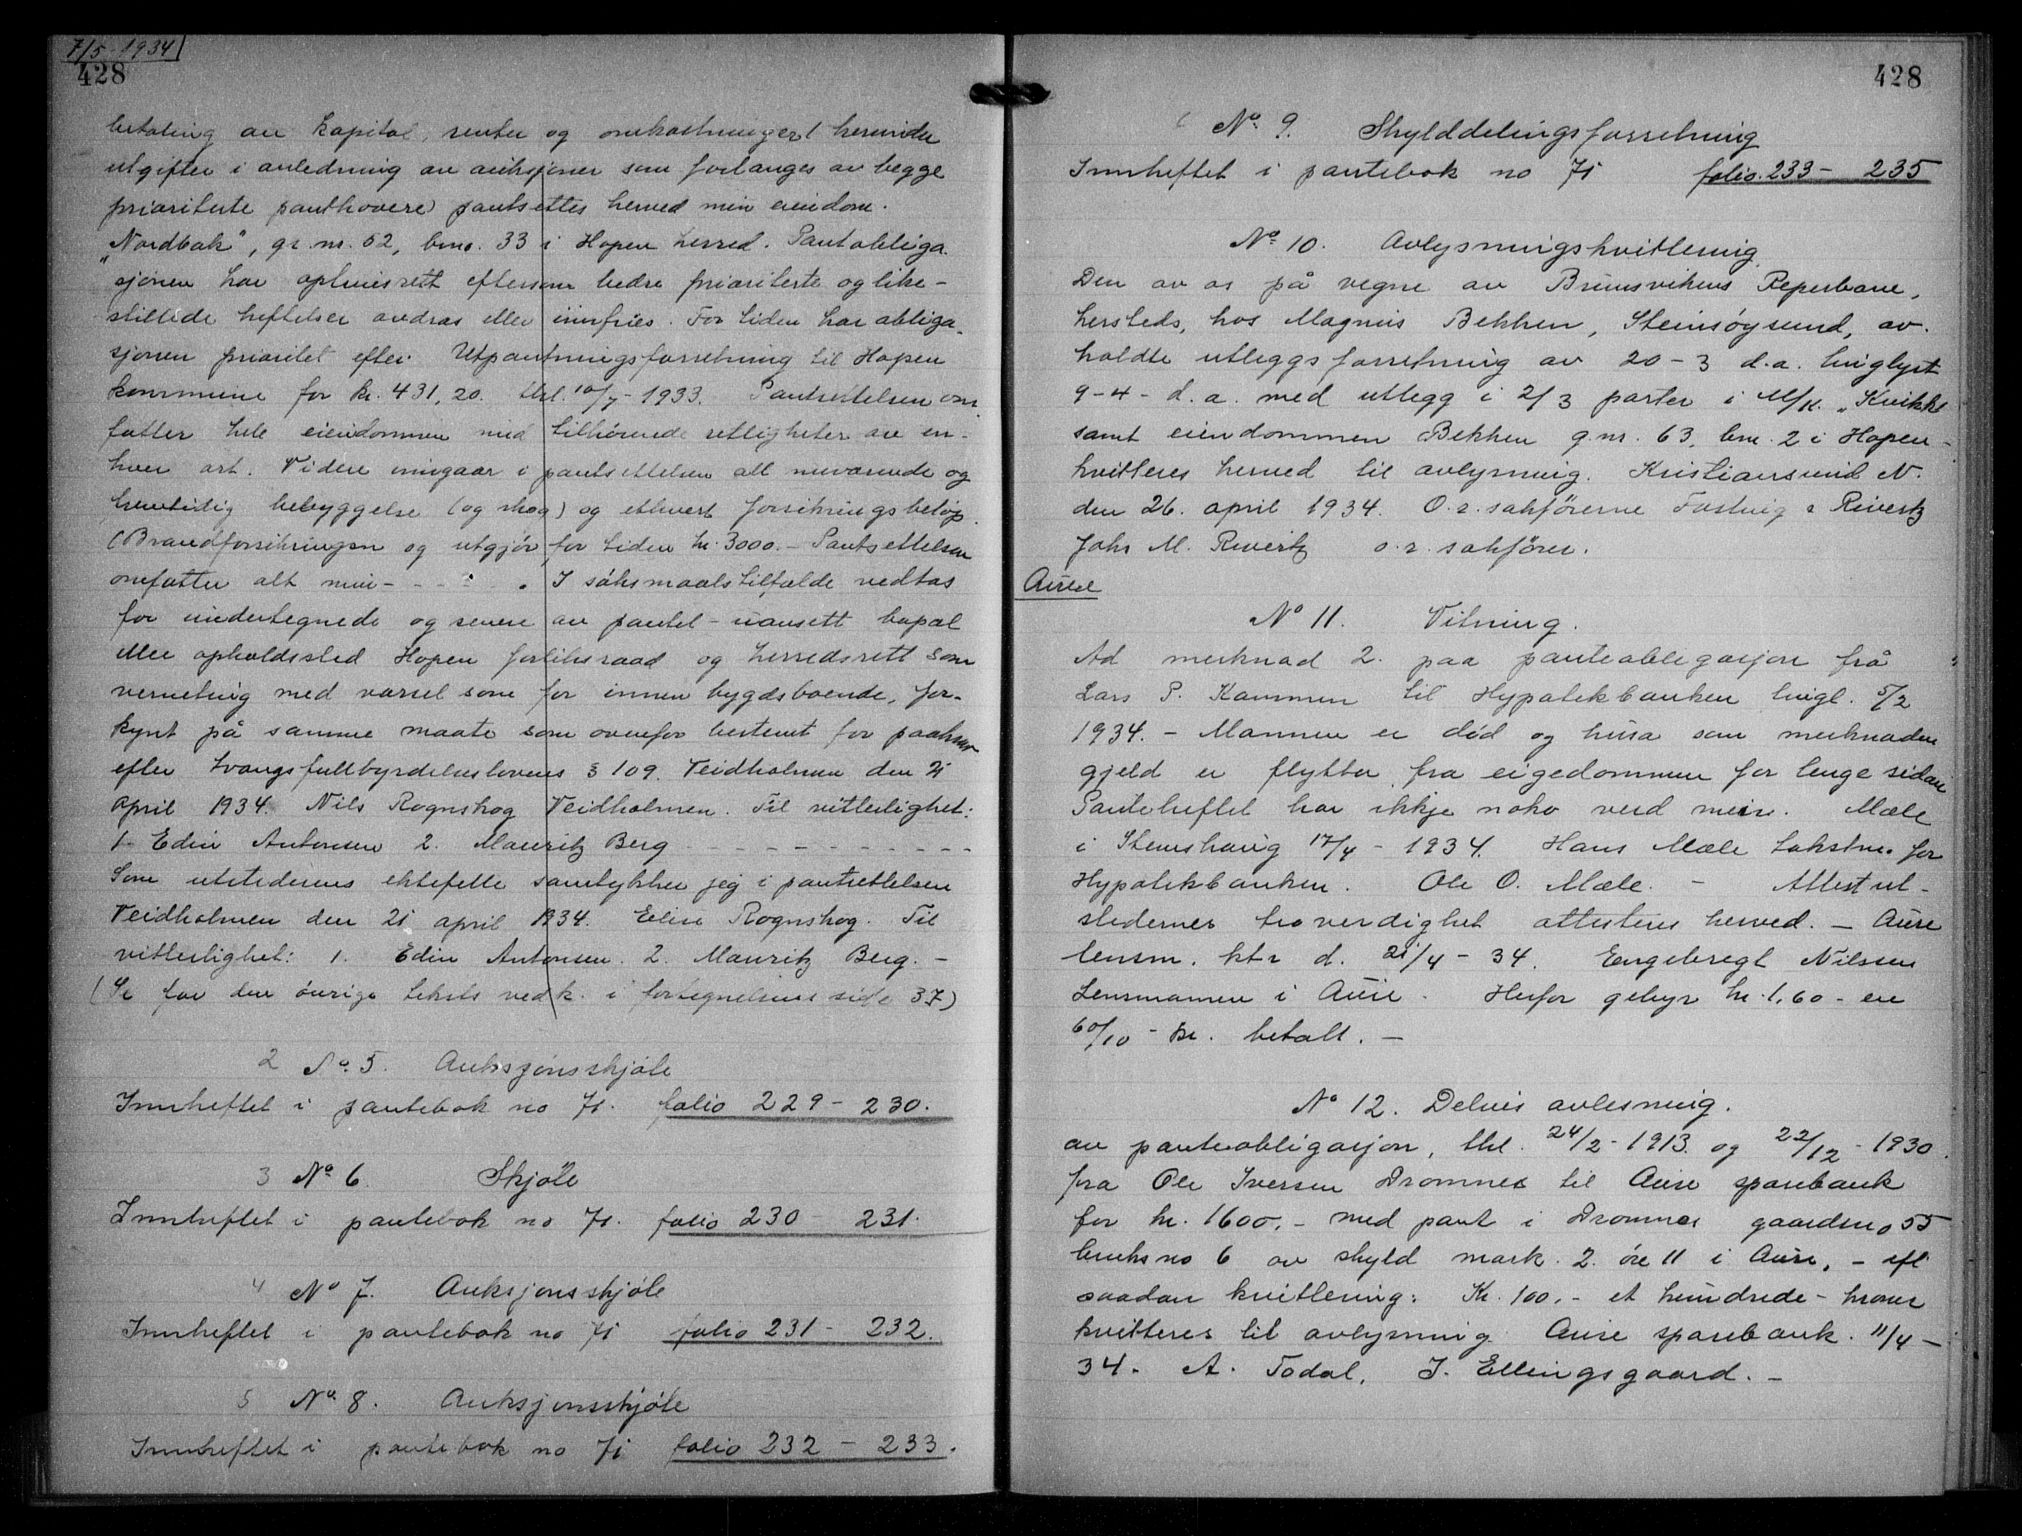 7/5-1934
428
betaling av kapital, renter og omkostninger (herunder
utgifter i anledning av auksjoner som forlanges av begge
prioriterte panthavere) pantsettes herved min eiendom.
"Nordbak", gr. nr. 62, bno. 33 i Hopen herred. Pantobliga-
sjonen har oprinsrett eftersom bedre prioriterte og like-
stillede heftelser avdras eller innfries. For tiden har obliga-
sjonen prioritet efter Utpantningsforretning til Hopen
kommune for kr. 431,20. tl. 10/7-1933. Pantsettelsen om-
fatter hele eiendommen med tilhørende rettigheter av en-
hver art. Videre inngaar i pantsettelsen all nuværende og
fremtidig bebyggelse (og skog) og ethvert forsikringsbeløp.
(Brandforsikringen og utgjør for tiden kr. 3000.- Pantsettelsen
omfatter alt min - - - - . I søksmaalstilfælde vedtas
for undertegnede og senere av pantet - uansett bopæl
eller opholdssted Hopen forliksraad og herredsrett som
verneting med varsel som for innen bygds boende, for-
kynt på samme maate som ovenfor bestemt for paakrav
efter tvangsfullbyrdelseslovens § 109. Veidholmen den 21
april 1934. Nils Rognskog Veidholmen. Til vitterlighet:
1. Edin Antonsen 2. Mauritz Berg - - - - - - - - - -
Som utstederens ektefelle samtykker jeg i pantsettelsen
Veidholmen den 21 april 1934. Elise Rognskog. Til
vitterlighet: 1. Edin Antonsen. 2. Mauritz Berg. -
(Se for den øvrige teksts vedk. i fortegnelsens side 37)
2 No. 5. Auksjonsskjøte
Innheftet i pantebok no 71. folio 229 - 230.
3 No. 6. Skjøte
Innheftet i pantebok no 71. folio 230 231.
4 No 7. Auksjonsskjøte
Innheftet i pantebok no 71 folio 231 - 232.
5 No. 8. Auksjonsskjøte
Innheftet i pantebok no 71 folio 232 - 233.
428
6 No. 9. Skylddelingsforretning
Innheftet i pantebok no 71 folio. 233 - 235
No. 10. Avlysningskvittering
Den av os på vegne av Brunsvikens Reperbane,
hersteds, hos Magnus Bekken, Steinsøysund, av-
holdte utleggsforretning av 20-3 d.a. tinglyst
9-4- d.a. med utlegg i 2/3 parter i M/K. "Kvikk"
samt eiendommen Bekken g.nr. 63, bnr. 2 i Hopen -
kvitteres herved til avlysning. Kristiansund N.
den 26. april 1934. O.r. sakførerne Fostvig & Rivertz
Johs M. Rivertz o.r. sakfører.
Aure
No 11. Vitning.
Ad merknad 2. paa panteobligasjon frå
Lars P. Kammen til Hypotekbanken tingl. 5/2
1934. - Mannen er død og husa som merknaden
gjeld er flytta fra eigedommen for lenge sidan
Panteheftet har ikkje noko verd meir. Mæle
i Stemshaug 17/4 - 1934. Hans Mæle takstm. for
Hypotekbanken. Ole O. Mæle. - Attest ut-
stedernes troverdighet attesteres herved. - Aure
lensm. ktr d. 21/4 - 34. Engebregt Nilssen
Lensmannen i Aure. Herfor gebyr kr. 1,60 - en
60/10 - kr. betalt. -
No 12. Delvis avlesning.
av panteobligasjon, tl. 24/2 - 1913. og 22/12 - 1930.
fra Ole Iversen Dromnes til Aure sparebank
for kr. 1600.- med pant i Dromnes gaardsno 55
bruksno 6 av skyld mark. 2. øre 11 i Aure, - eft.
saadan kvittering: Kr. 100.- et hundrede - kroner
kvitteres til avlysning. Aure sparebank. 11/4 -
34. A. Todal. J. Ellingsgaard. -